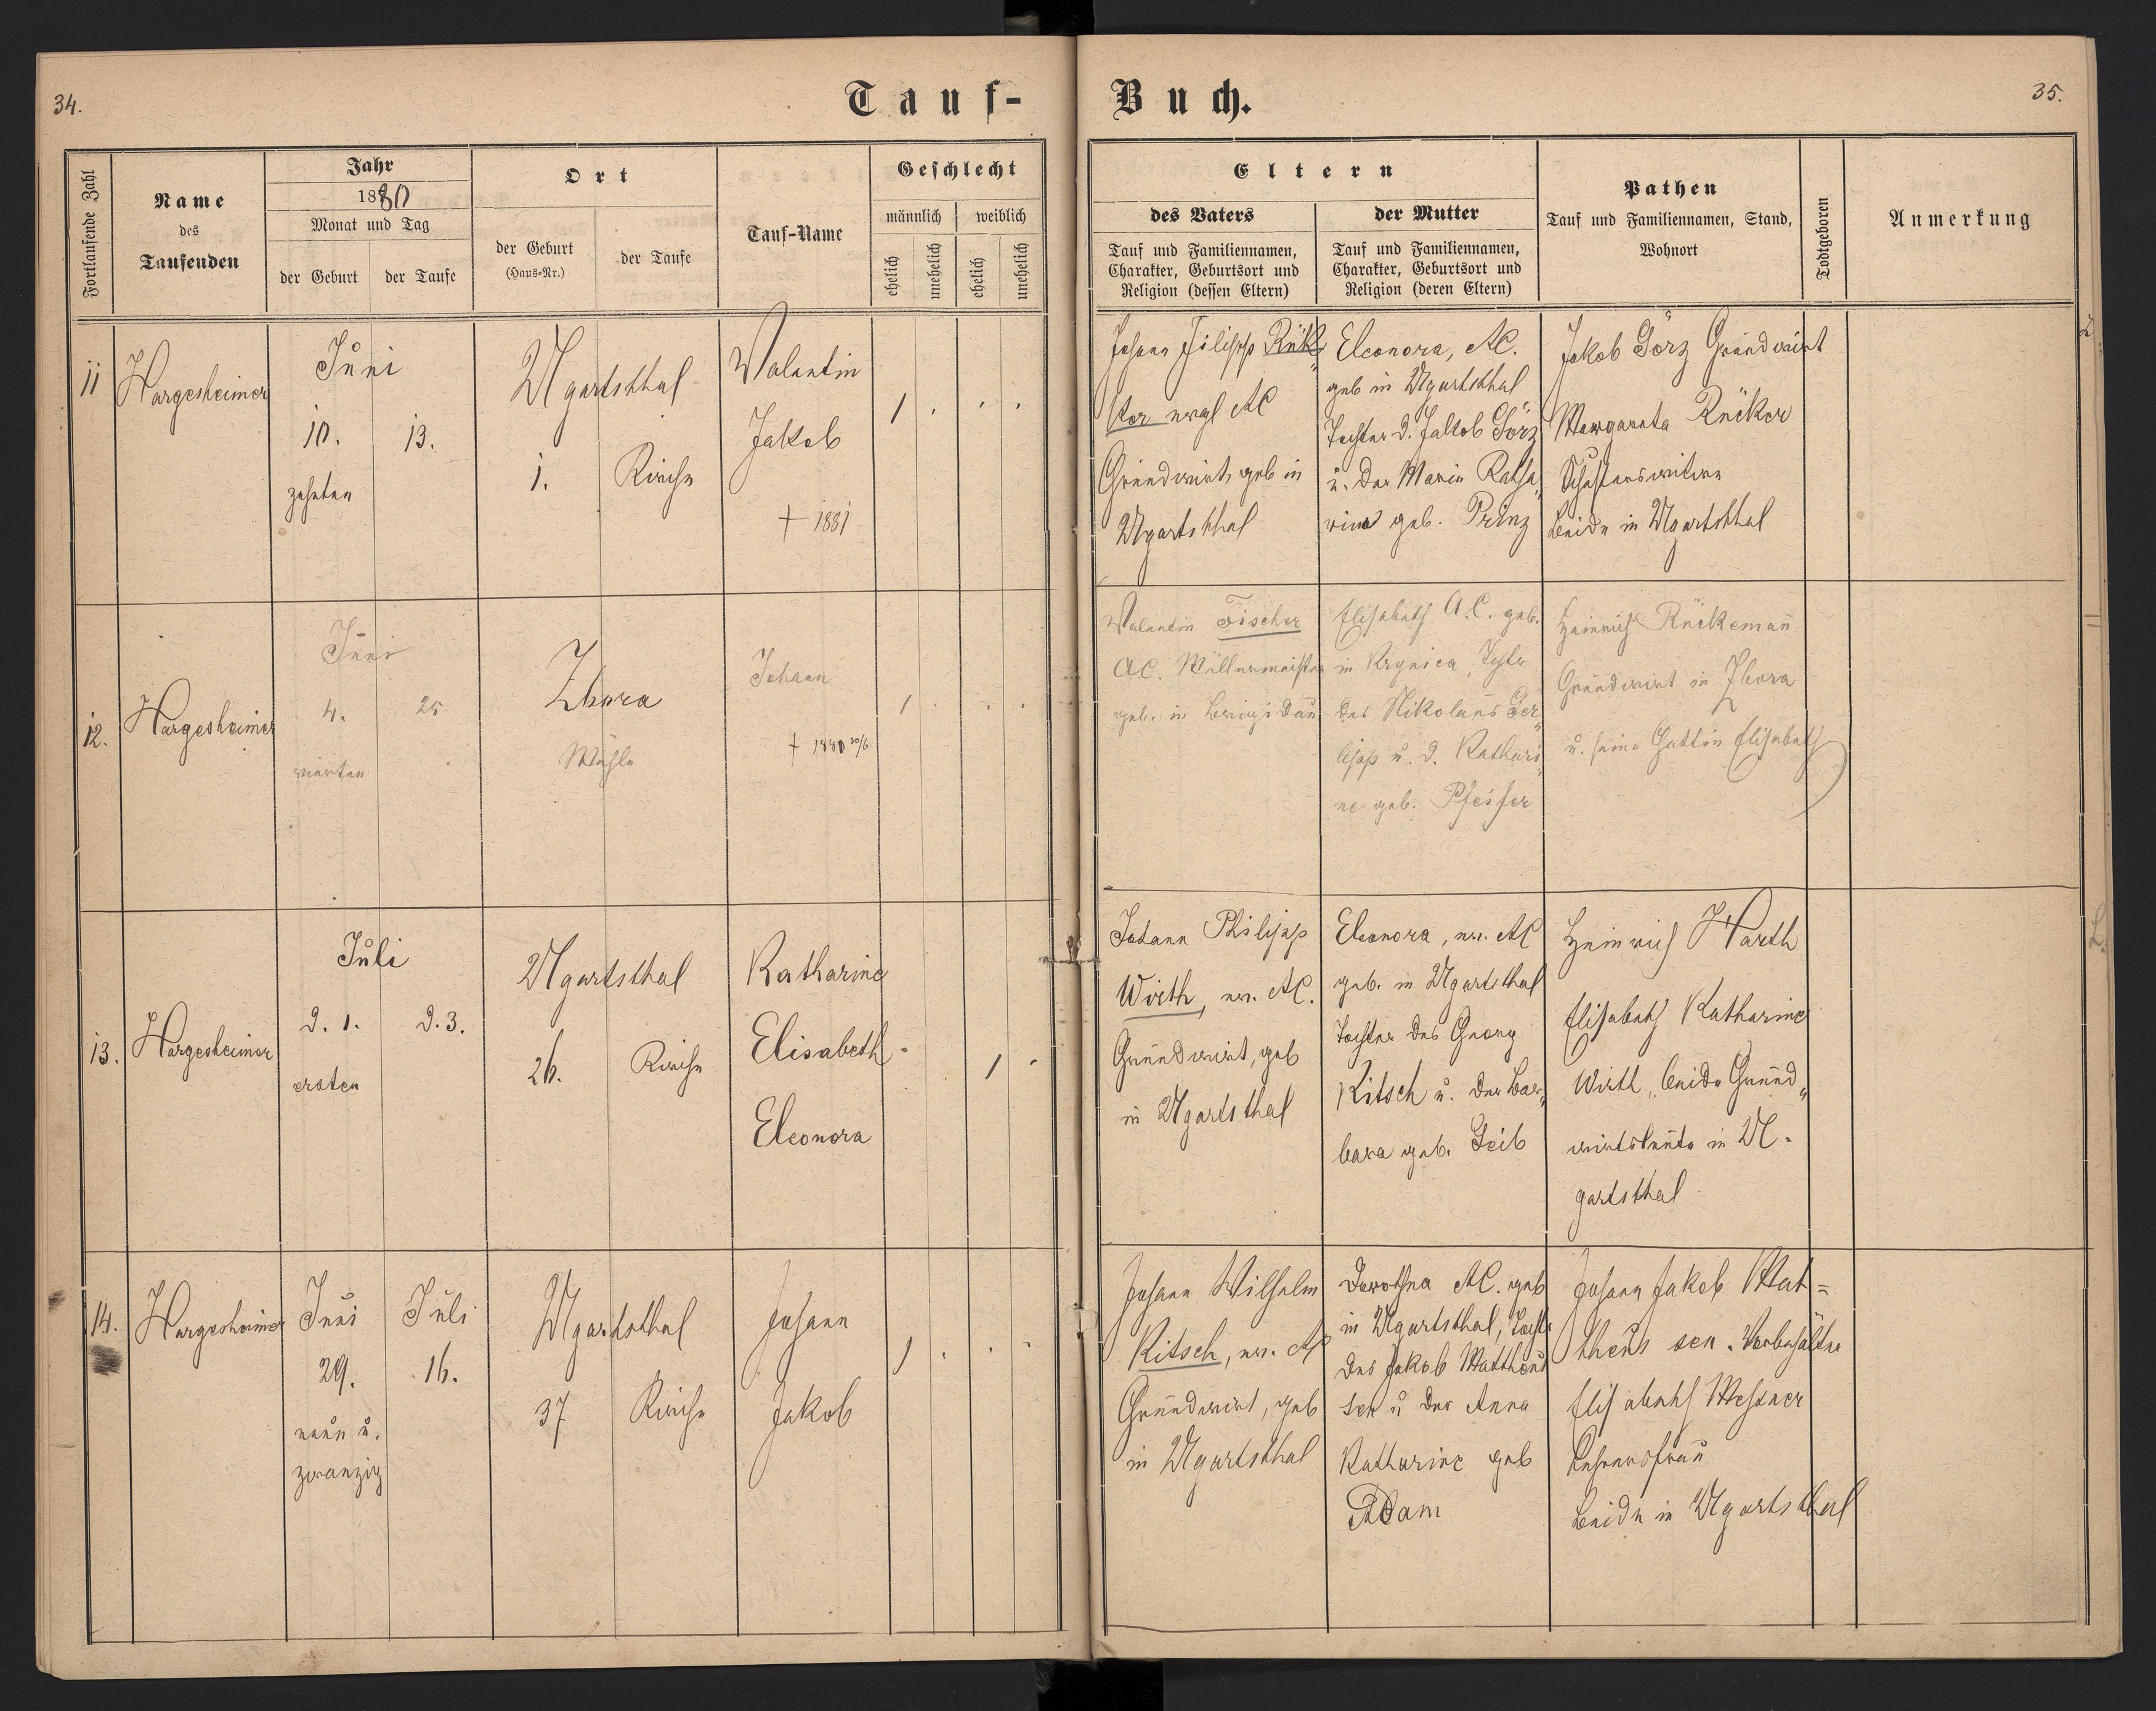 34.
Tauf-
Fortlaufende Zahl
Name
des
Taufenden
Jahr
1880
Monat und Tag
der Geburt
der Taufe
Ort
der Geburt
(Haus-Nr.)
der Taufe
Tauf-Name
Geschlecht
männlich
weiblich
ehelich
unehelich
ehelich
unehelich
11
Hargesheimer
Juni
10.
13.
zehnten
Ugartsthal
1.
Kirche
Valentin
Jakob
† 1881
1
12.
Hargesheimer
Juni
4.
25
vierten
Zbora
Mühle
Johann
† 1880 30/6
1
13.
Hargesheimer
Juli
d. 1.
d. 3.
ersten
Ugartsthal
26.
Kirche
Katharine
Elisabeth
Eleonora
1
14.
Hargesheimer
Juni
Juli
29.
16.
neun u.
zwanzig
Ugartsthal
37
Kirche
Johann
Jakob
1
Buch.
35.
Eltern
des Vaters
Tauf und Familiennamen,
Charakter, Geburtsort und
Religion (dessen Eltern)
der Mutter
Tauf und Familiennamen,
Charakter, Geburtsort und
Religion (deren Eltern)
Pathen
Tauf und Familiennamen, Stand,
Wohnort
Todtgeboren
Anmerkung
Johann Filipp Rük„
ker evgl AC
Grundwirt, geb in
Ugartsthal
Eleonora, AC.
geb in Ugartsthal
Tochter d. Jakob Görz
u. der Maria Katha„
rina geb. Prinz
Jakob Görz Grundwirt
Margareta Rücker
Beide in Ugartsthal
Valentin Fischer
AC. Müllermeister
geb. in
Elisabeth A.C. geb.
in Krynica, Tocht
des Nikolaus Ger„
lipp u. d. Kathari„
ne geb. Pfeifer
Heinrich Rückemann
Grundwirt in Zbora
u. seine Gattin Elisabeth
Johann Philipp
Wirth, ev. AC.
Grundwirt, geb
in Ugartsthal
Eleonora, ev. AC
geb. in Ugartsthal
Tochter des Georg
Kitsch u. der Bar„
bara geb. Geib
Heinrich Harth
Elisabeth Katharine
Wirth, beide Grund„
wirtsleute in U-
gartsthal
Johann Wilhelm
Kitsch, ev. AC
Grundwirt, geb
in Ugartsthal
Dorothea AC. geb
in Ugartsthal, Tocht
des Jakob Mattheus
sen u der Anna
Katharine geb
Adam
Johann Jakob Mat=
theus sen. Vorbehältler
Elisabeth Messner
Lehrersfrau
Beide in Ugartsthal